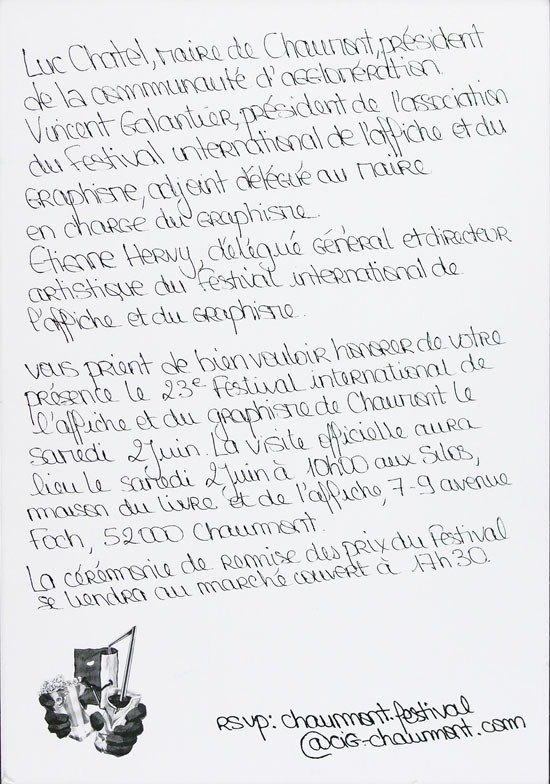 Luc Chatel, maire de Chaumont, président
de la communauté d'agglomération
Vincent Galantier, président de l'association
du Festival international de l'affiche et du
graphisme, adjoint délégué au maire
en charge du graphisme.
Étienne Hervy, délégué général et directeur
artistique du festival international de
l'affiche et du graphisme.
vous prient de bien vouloir honorer de votre
présence le 23e Festival international de
l'affiche et du graphisme de Chaumont le
samedi 2 juin. La visite officielle aura
lieu le samedi 2 juin à 10h00 aux Silos,
maison du livre et de l'affiche, 7-9 avenue
Foch, 52000 Chaumont.
La cérémonie de remise des prix du Festival
se tiendra au marché couvert à 17h30.
RSVP: chaumont.festival
@cig-chaumont.com